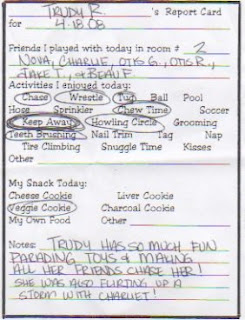 TRUDY R. 's Report Card
for 4.18.08
Friends I played with today in room # 2
NOVA, CHARLIE, OTIS G., OTIS R.,
JAKE T., & BEAU F.
Activities I enjoyed today:
Chase Wrestle Tug Ball Pool
Hose Sprinkler Chew Time Soccer
Keep Away Howling Circle Grooming
Teeth Brushing Nail Trim Tag Nap
Tire Climbing Snuggle Time Kisses
Other
My Snack Today:
Cheese Cookie Liver Cookie
Veggie Cookie Charcoal Cookie
My Own Food Other
Notes: TRUDY HAS SO MUCH FUN
PARADING TOYS & MAKING
ALL HER FRIENDS CHASE HER!
SHE WAS ALSO FLIRTING UP A
STORM WITH CHARLIE!